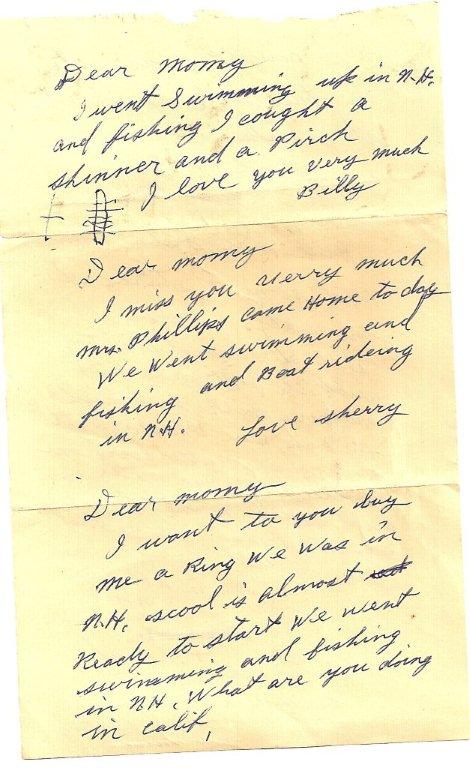 Dear momy
I went Swimming up in N.H.
and fishing I cought a
shinner and a Pirch
I love you very much
Billy
Dear momy
I miss you verry much
mrs. Phillips came Home to day
We Went swimming and
fishing and Boat rideing
in N.H. Love sherry
Dear momy
I want to you buy
me a Ring We Was in
N.H. scool is almost
Ready to start We went
swimming and fishing
in NH. What are you doing
in calif,